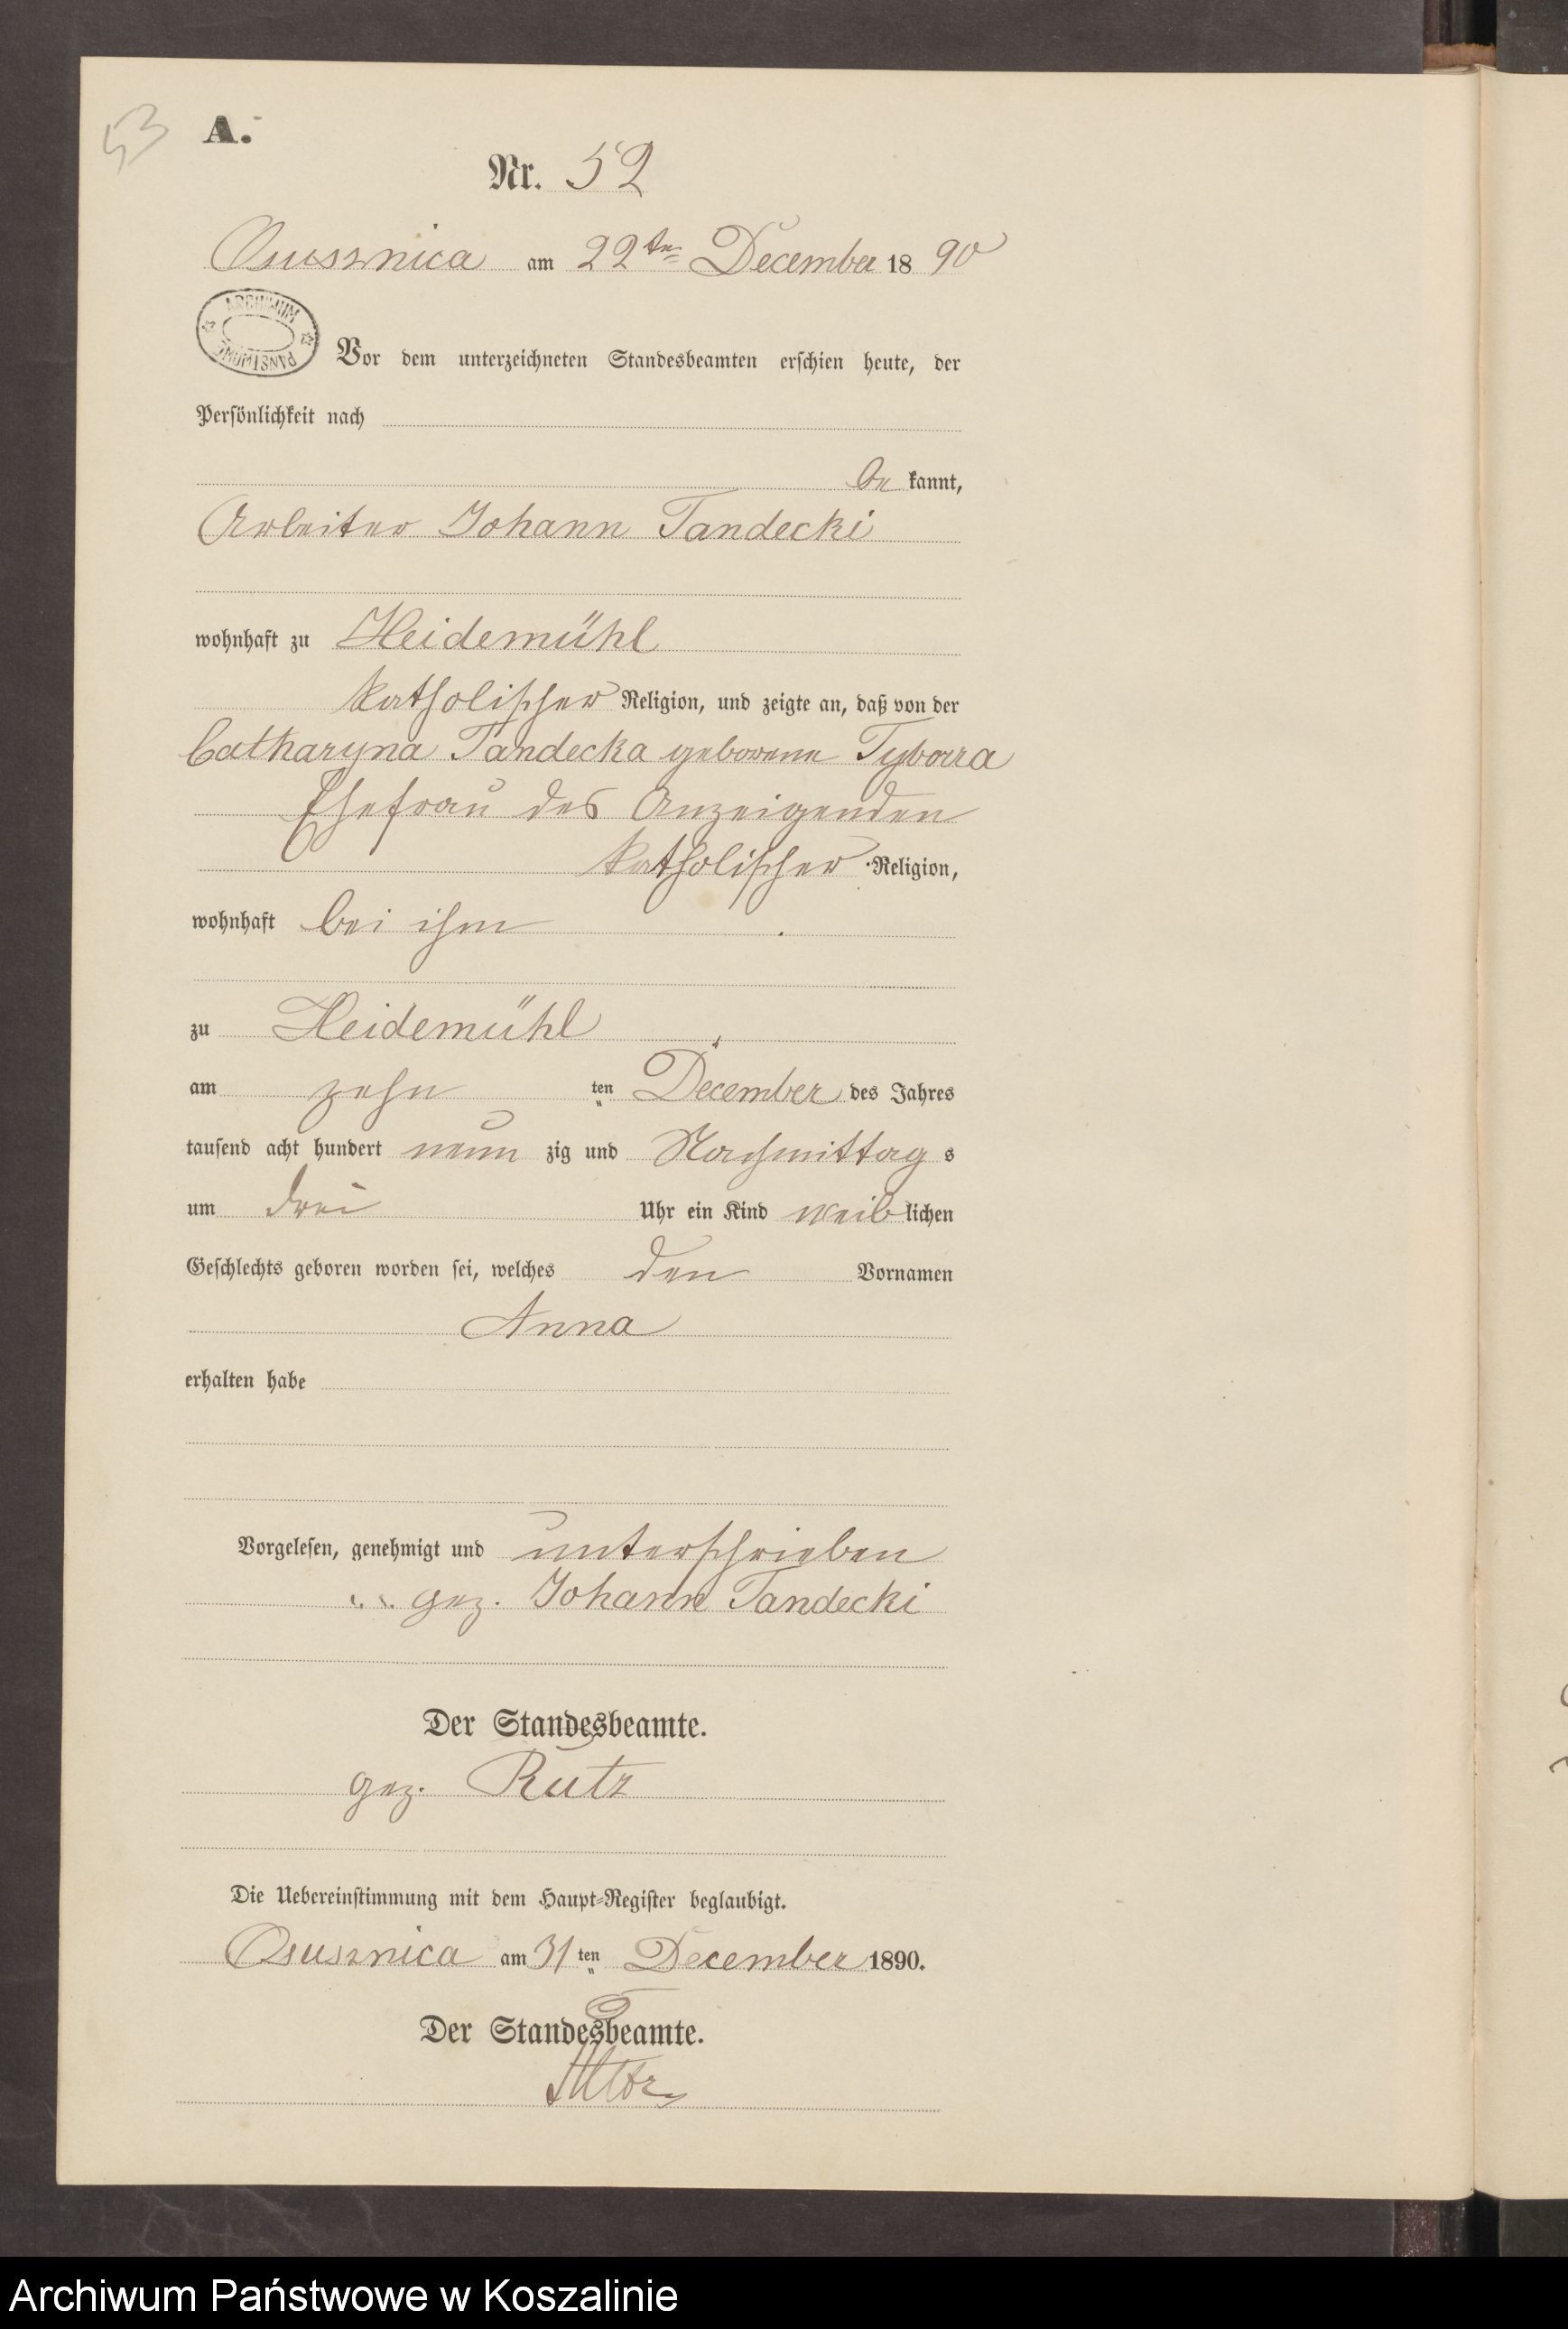 53
A.
Nr. 52
Ossusznica am 22ten December 18 90
ARCHIWUM
PAŃSTWOWE
Vor dem unterzeichneten Standesbeamten erschien heute, der
Persönlichkeit nach
be kannt,
Arbeiter Johann Tandecki
wohnhaft zu Heidemühl
katholischer Religion, und zeigte an, daß von der
Catharyna Tandecka geborene Tyborra
Ehefrau des Anzeigenden
katholischer Religion,
wohnhaft bei ihm
zu Heidemühl
am zehn ten December des Jahres
tausend acht hundert neun zig und Nachmittag s
um drei Uhr ein Kind weib lichen
Geschlechts geboren worden sei, welches den Vornamen
Anna
erhalten habe
Vorgelesen, genehmigt und unterschrieben
gez. Johann Tandecki
Der Standesbeamte.
gez. Rutz
Die Uebereinstimmung mit dem Haupt=Register beglaubigt.
Ossusznica am 31 ten December 1890.
Der Standesbeamte.
Archiwum Państwowe w Koszalinie